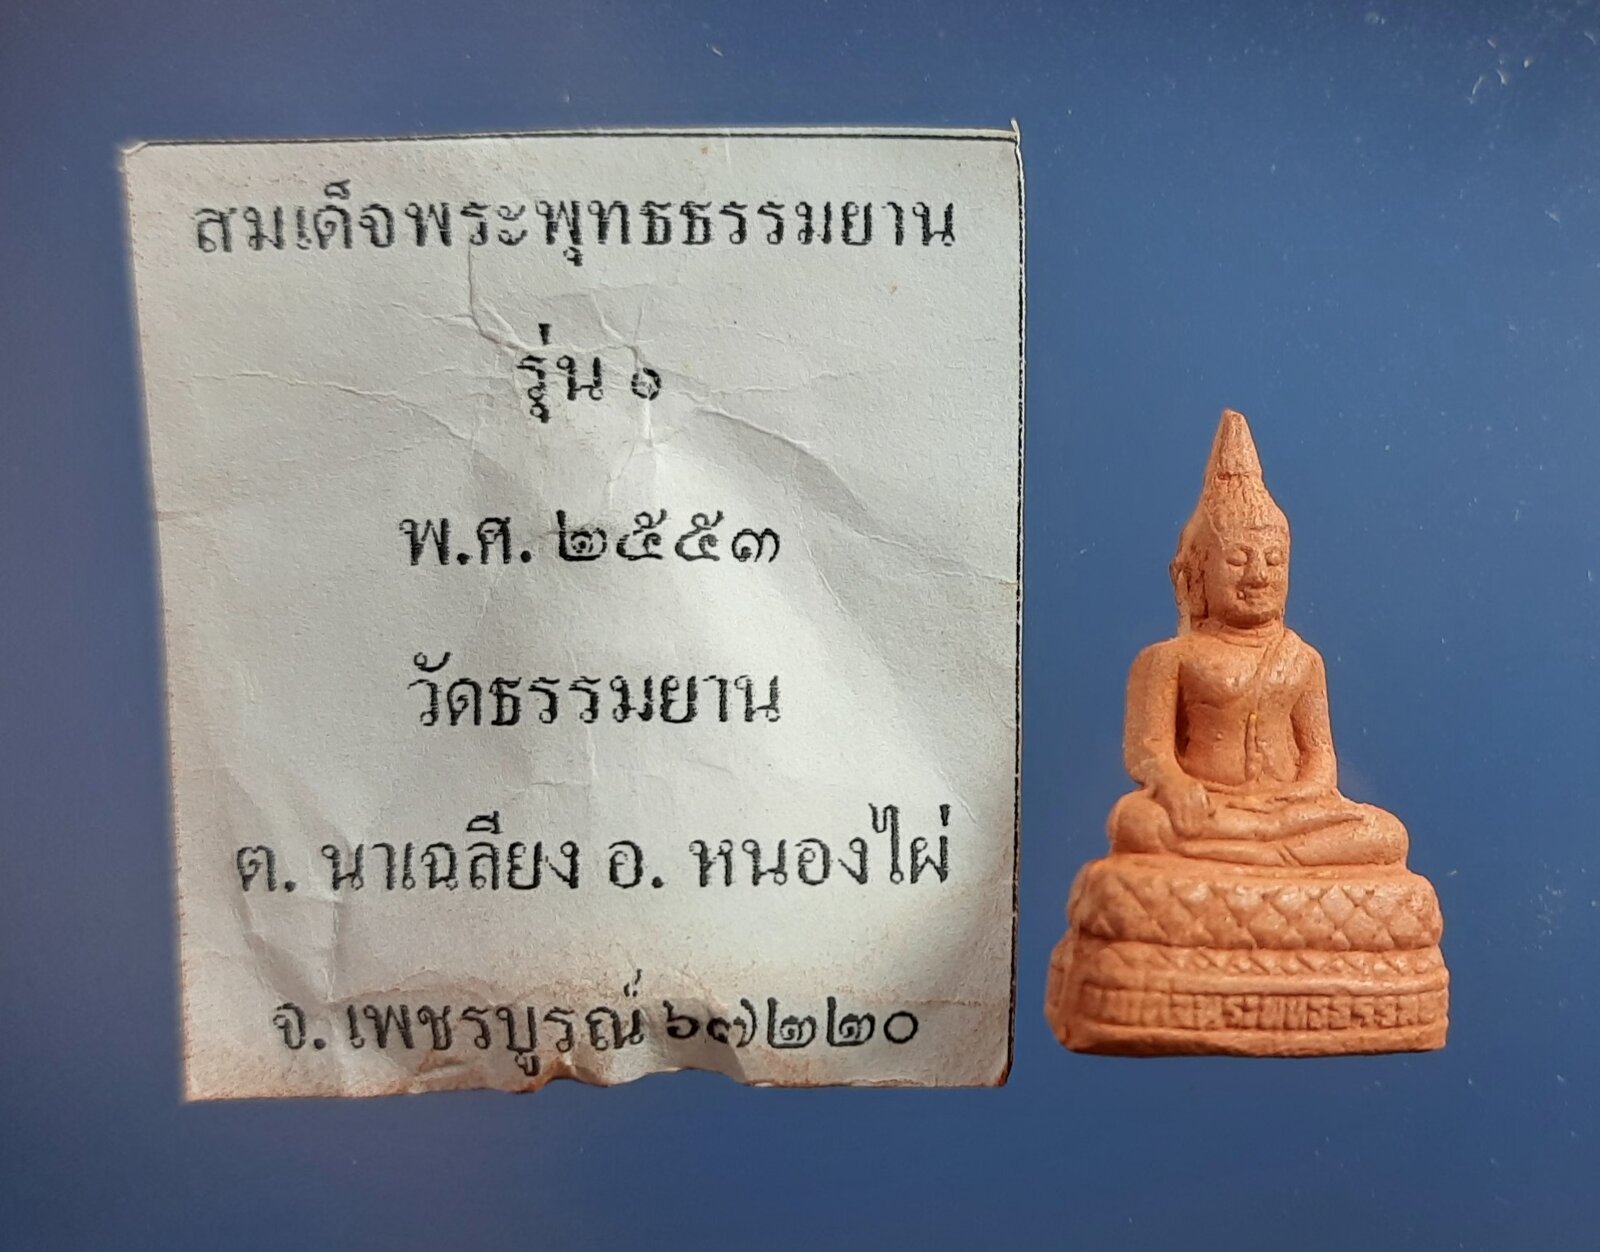 สมเด็จพระพุทธธรรมยาน
รุ่น ๑
พ.ศ. ๒๕๕๓
วัดธรรมยาน
ต. นาเฉลียง อ. หนองไผ่
จ. เพชรบูรณ์ ๖๗๒๒๐
สมเด็จพระพุทธธรรม